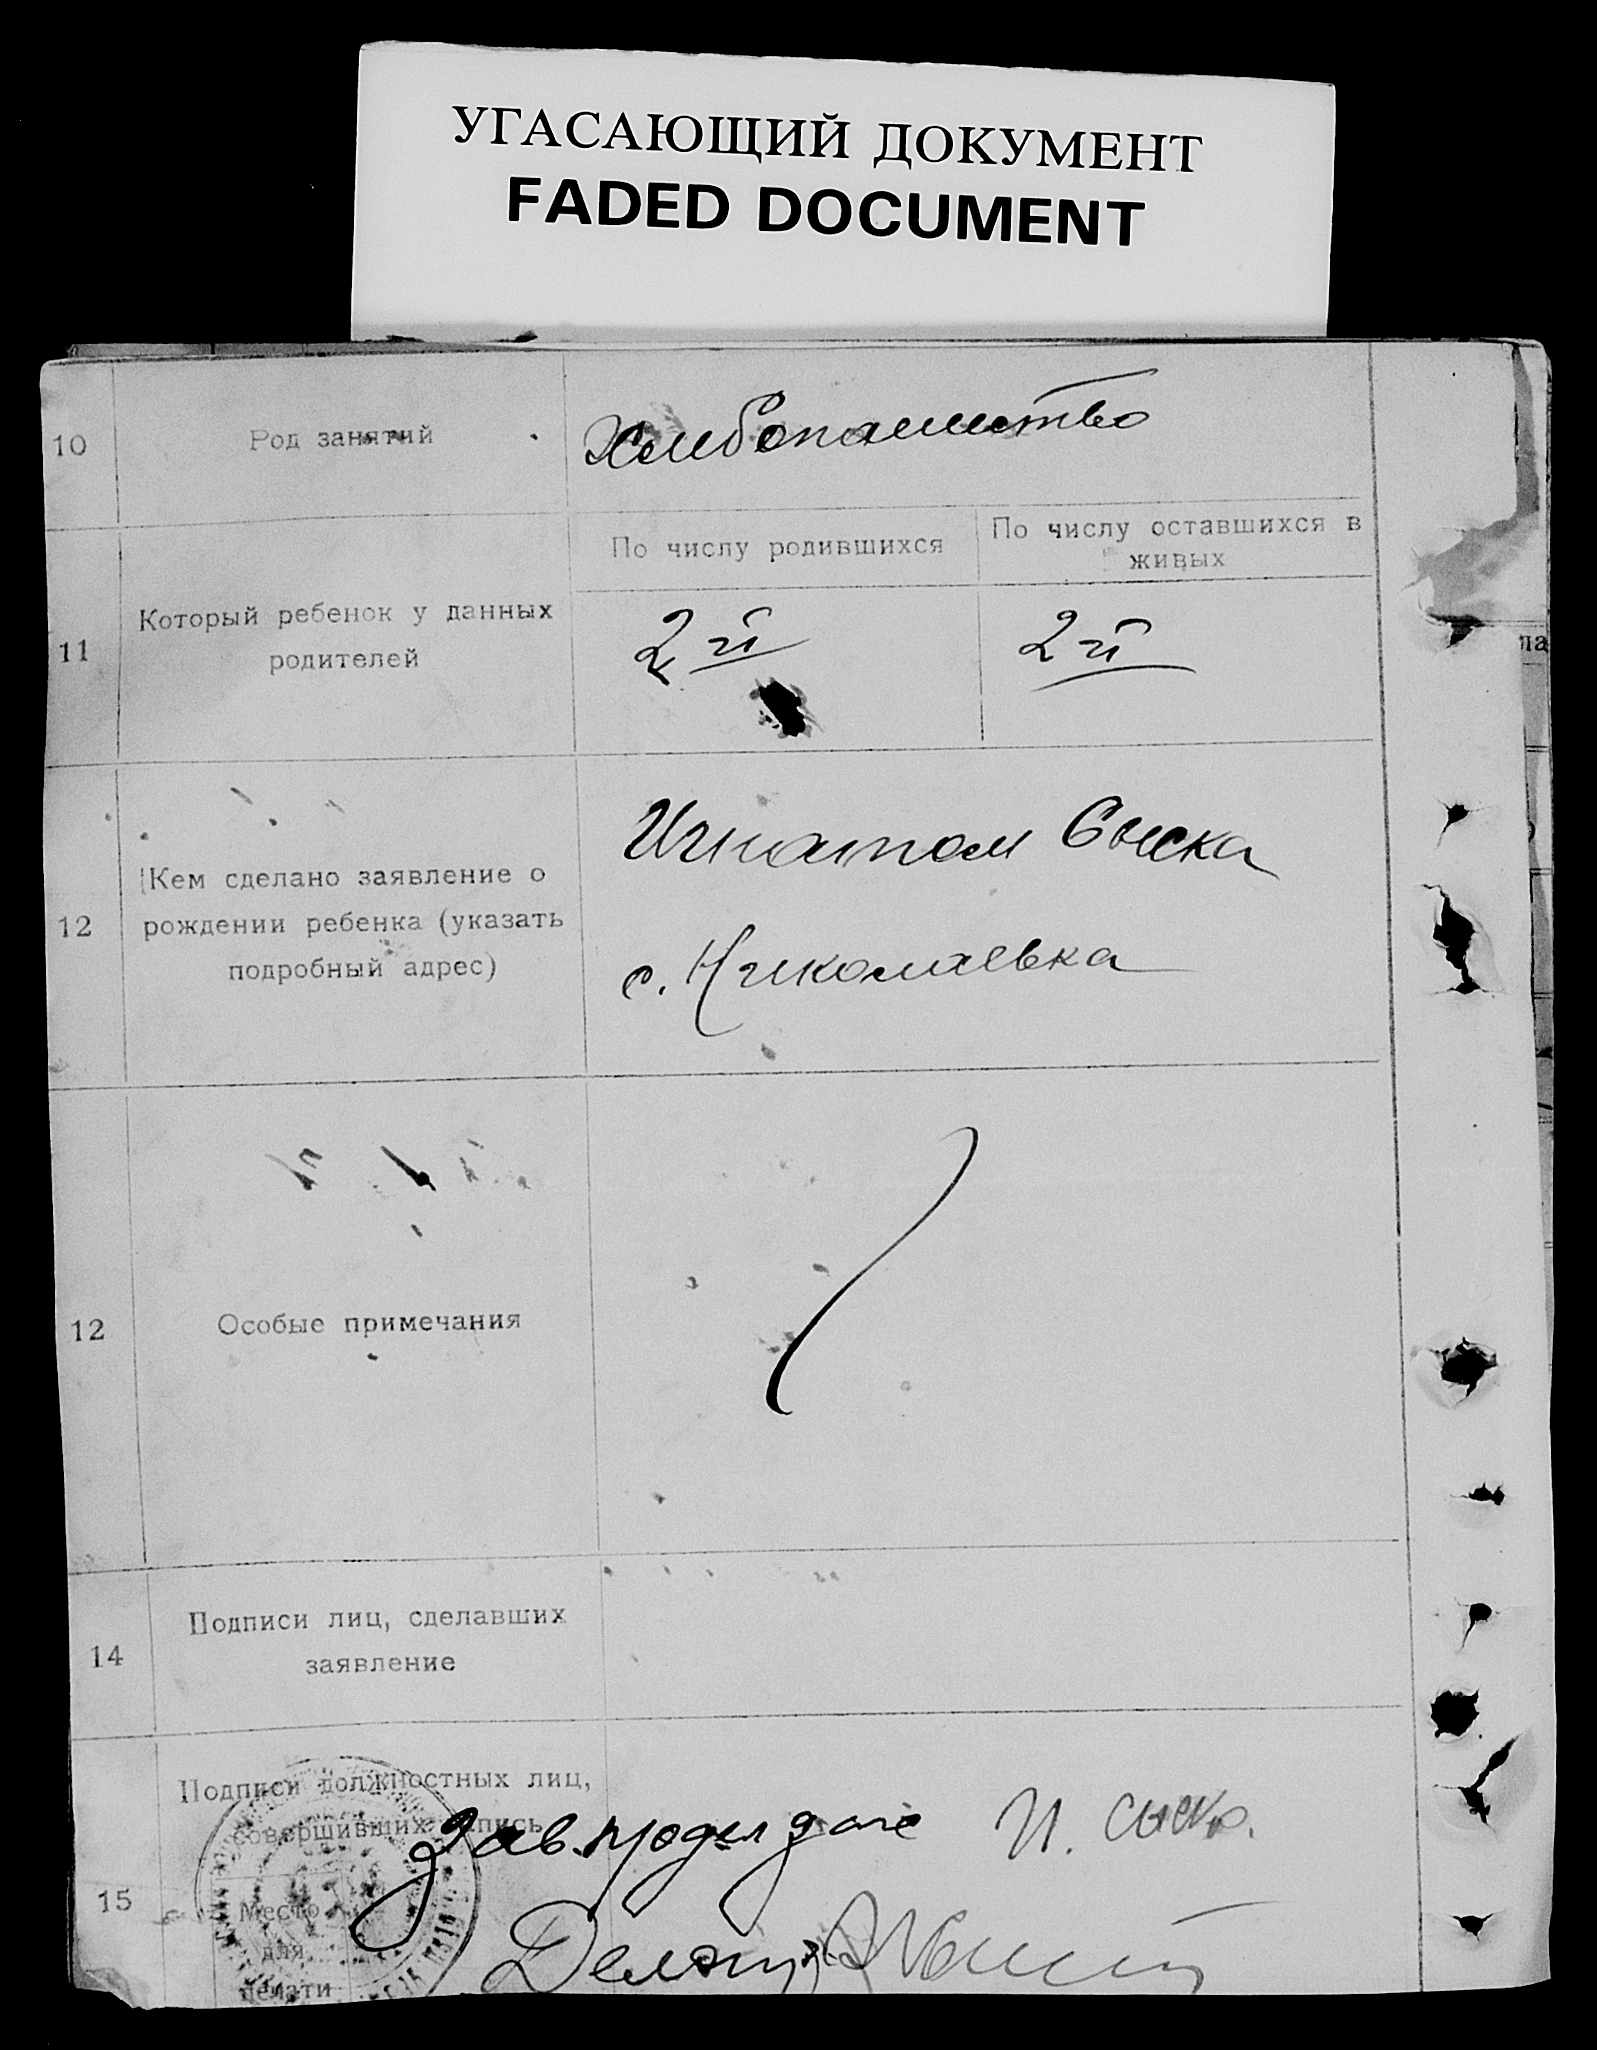 УГАСАЮЩИЙ ДОКУМЕНТ
FADED DOCUMENT
10
Род занятий
Хлибопашество
11
Который ребенок у данных
родителей
По числу родившихся
2й
По числу оставшихся в
живых
2й
12
Кем сделано заявление о
рождении ребенка (указать
подробный адрес)
Игнатом Сыска
с. Николаевка
12
Особые примечания
14
Подписи лиц, сделавших
заявление
15
Подписи должностных лиц,
совершивших запись
Место
для
печати
Зав.
И.